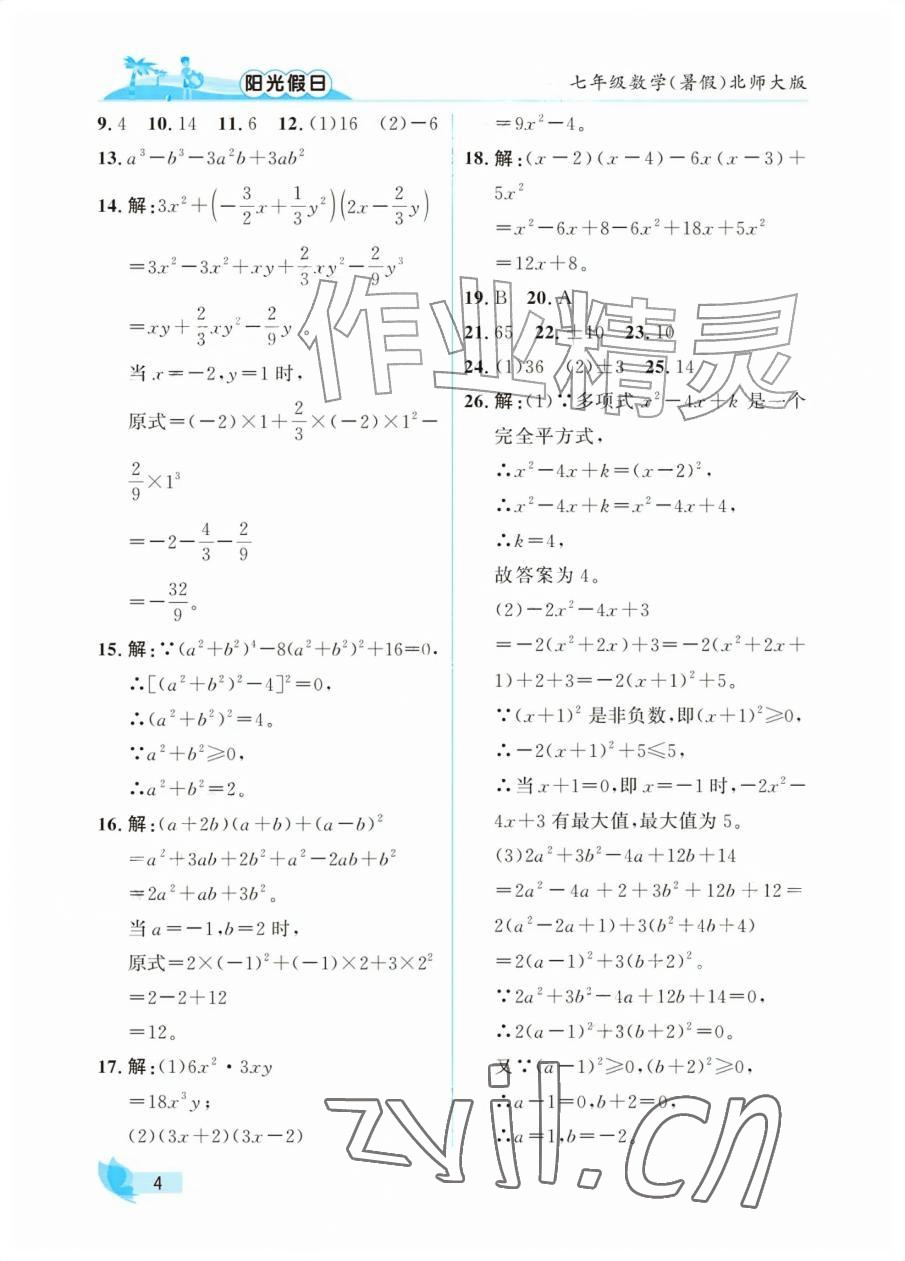 阳光假日
七年级数学(暑假)北师大版
9.4 10.14 11.6 12.(1)16 (2)-6
13.a³-b³-3a²b+3ab²
14.解:3x²+(-3/2x+1/3y²)(2x-2/3y)
=3x²-3x²+xy+2/3xy²-2/9y³
=xy+2/3xy²-2/9y。
当x=-2,y=1时,
原式=(-2)×1+2/3×(-2)×1²-
2/9×1³
=-2-4/3-2/9
=-32/9。
15.解:∵(a²+b²)⁴-8(a²+b²)²+16=0,
∴[(a²+b²)²-4]²=0,
∴(a²+b²)²=4。
∵a²+b²≥0,
∴a²+b²=2。
16.解:(a+2b)(a+b)+(a-b)²
=a²+3ab+2b²+a²-2ab+b²
=2a²+ab+3b²。
当a=-1,b=2时,
原式=2×(-1)²+(-1)×2+3×2²
=2-2+12
=12。
17.解:(1)6x²·3xy
=18x³y;
(2)(3x+2)(3x-2)
=9x²-4。
18.解:(x-2)(x-4)-6x(x-3)+
5x²
=x²-6x+8-6x²+18x+5x²
=12x+8。
19.B 20.A
21.65 22.±10 23.10
24.(1)36 (2)±3 25.14
26.解:(1)∵多项式x²-4x+k是一个
完全平方式,
∴x²-4x+k=(x-2)²,
∴x²-4x+k=x²-4x+4,
∴k=4,
故答案为4。
(2)-2x²-4x+3
=-2(x²+2x)+3=-2(x²+2x+
1)+2+3=-2(x+1)²+5。
∵(x+1)²是非负数,即(x+1)²≥0,
∴-2(x+1)²+5≤5,
∴当x+1=0,即x=-1时,-2x²-
4x+3有最大值,最大值为5。
(3)2a²+3b²-4a+12b+14
=2a²-4a+2+3b²+12b+12=
2(a²-2a+1)+3(b²+4b+4)
=2(a-1)²+3(b+2)²。
∵2a²+3b²-4a+12b+14=0,
∴2(a-1)²+3(b+2)²=0,
又∵(a-1)²≥0,(b+2)²≥0,
∴a-1=0,b+2=0,
∴a=1,b=-2。
4
作业精灵
zyjl.cn